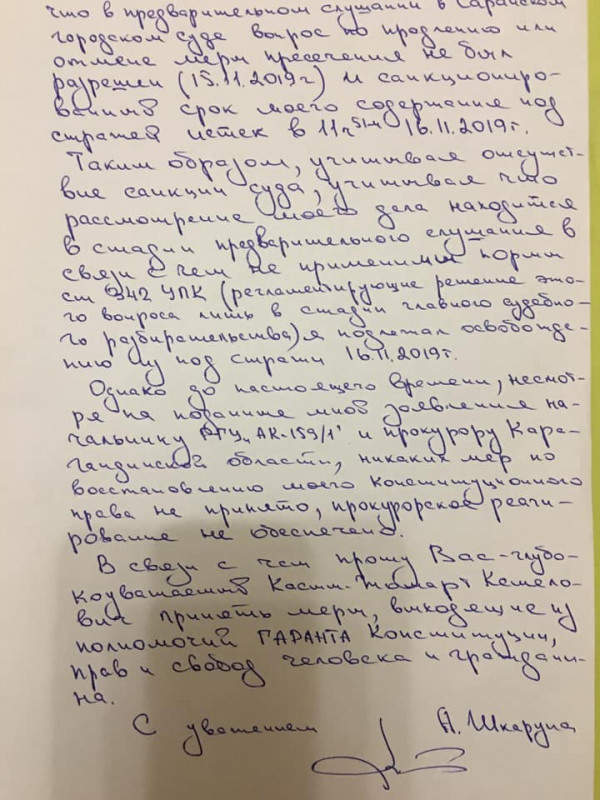 что в предварительном слушании в Саранском
городском суде вопрос по продлению или
отмене меры пресечения не был
разрешен (15.11.2019г) и санкциониро-
ванный срок моего содержания под
стражей истек в 11ч 51м 16.11.2019г.
Таким образом, учитывая отсутст-
вие санкции суда, учитывая что
рассмотрение моего дела находится
в стадии предварительного слушания в
связи с чем не применимы нормы
ст 342 УПК (регламентирующие решение это-
го вопроса лишь в стадии главного судебно-
го разбирательства) я подлежал освобожде-
нию из под стражи 16.11.2019г.
Однако до настоящего времени, несмот-
ря на поданные мной заявления на-
чальнику РГУ „АК-159/1" и прокурору Кара-
гандинской области, никаких мер по
восстановлению моего Конституционного
права не принято, прокурорское реаги-
рование не обеспечено.
В связи с чем прошу Вас - глубо-
коуважаемый Касым-Жомарт Кемело-
вич принять меры, выходящие из
полномочий ГАРАНТА Конституции,
прав и свобод человека и граждани-
на.
С уважением А. Шкаруна